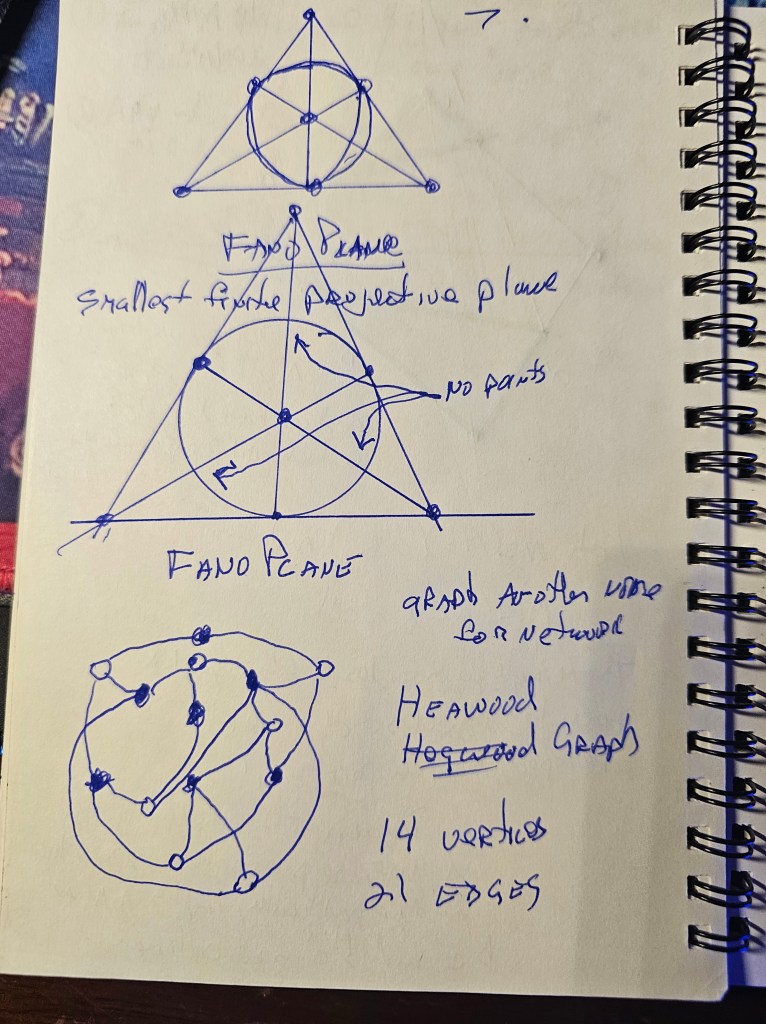 7.
FANO PLANE
Smallest finite projective plane
No points
FANO PLANE
GRAPH Another name
for Network
HEAWOOD
Hogwood GRAPH
14 vertices
21 EDGES